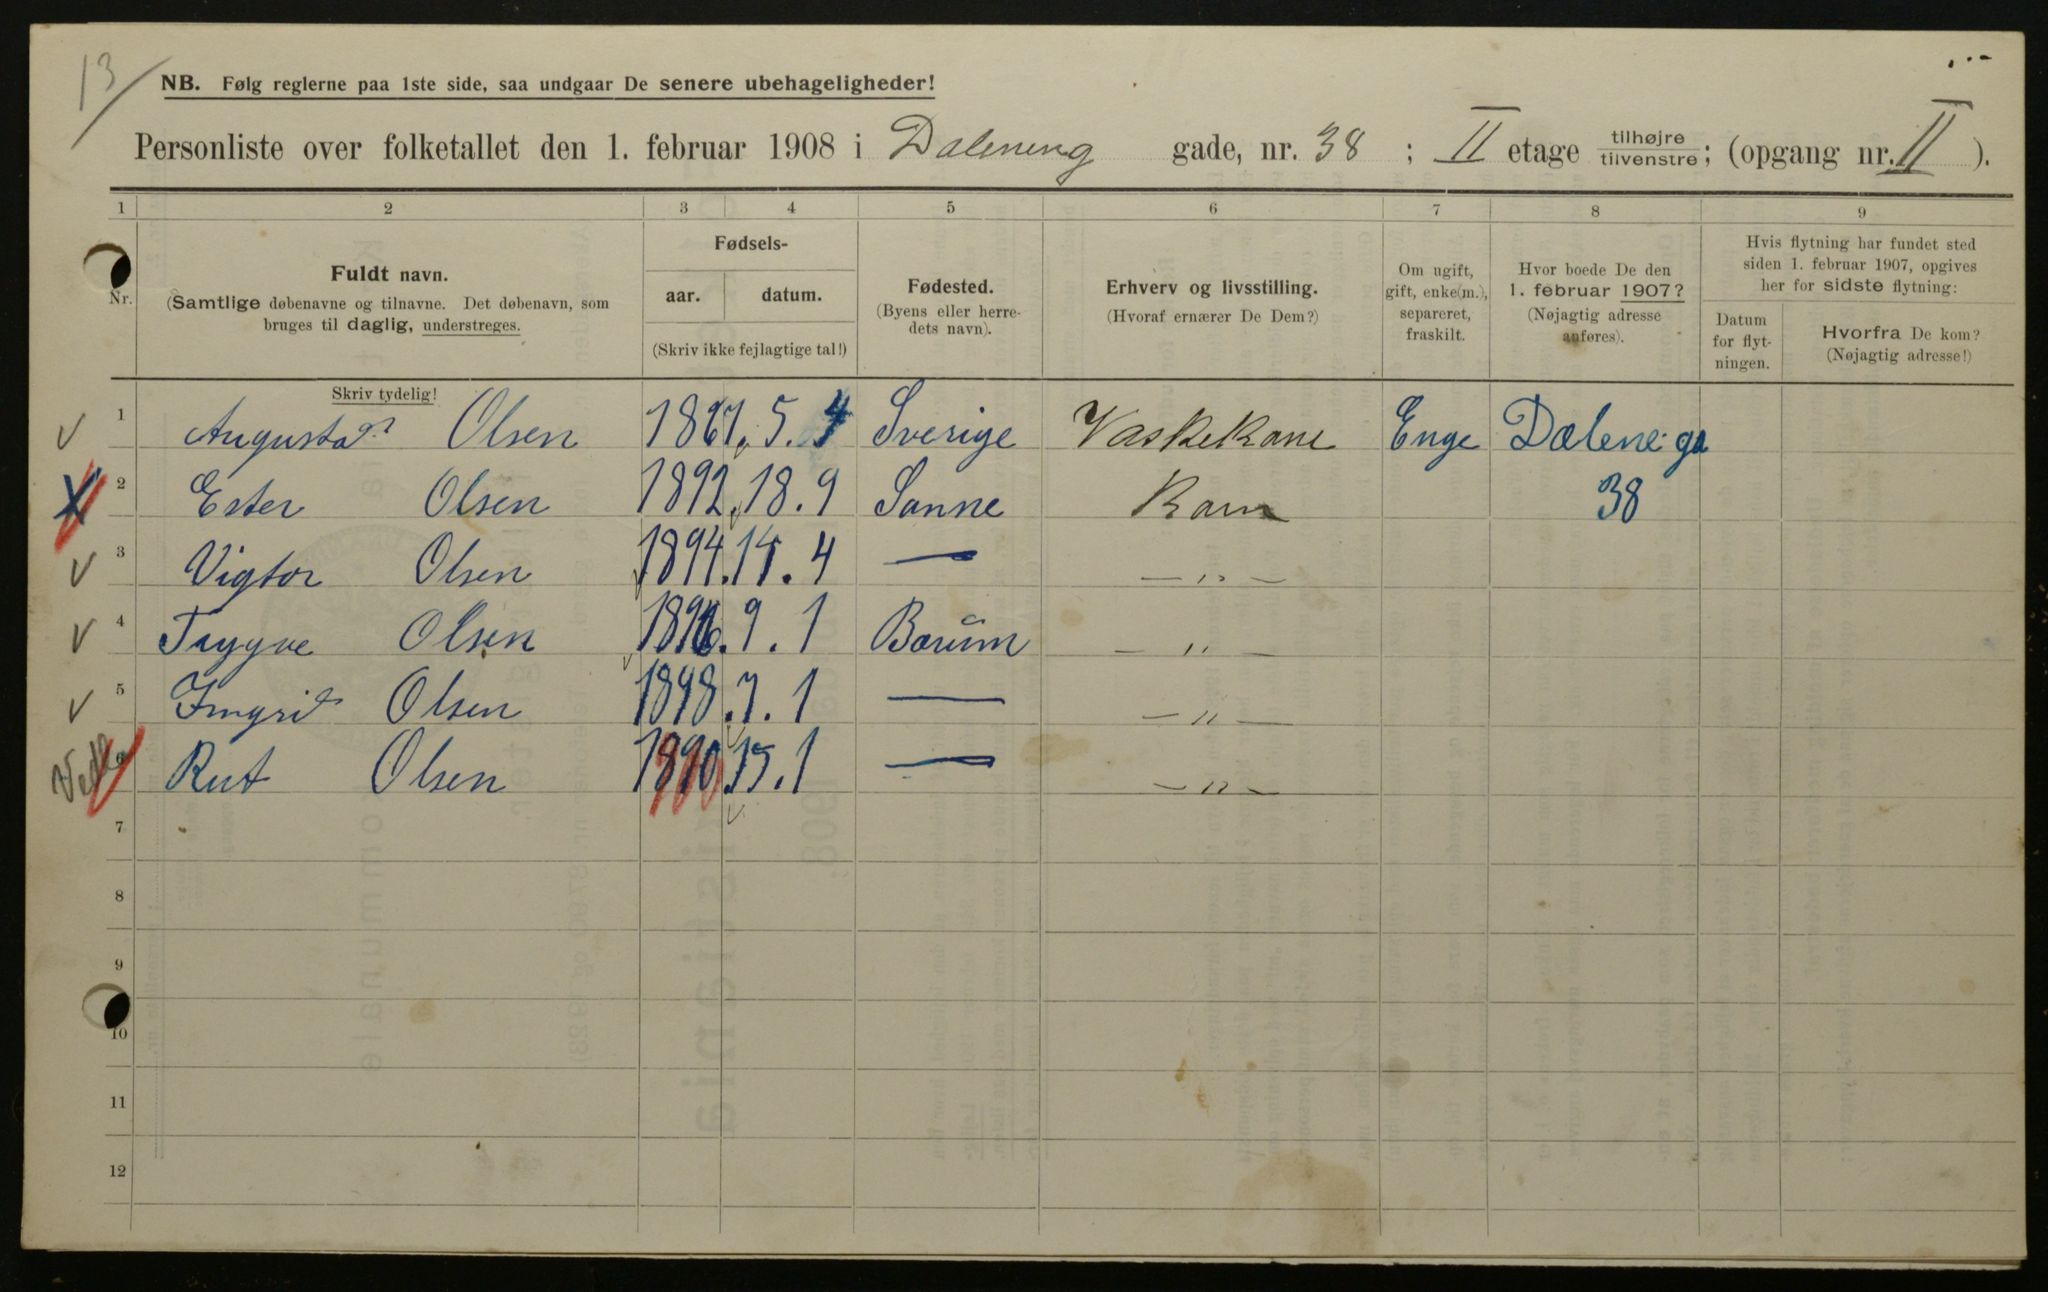 13/
NB. Følg reglerne paa 1ste side, saa undgaar De senere ubehageligheder!
Personliste over folketallet den 1. februar 1908 i Dalening gade, nr. 38 ; II etage tilhøjre tilvenstre; (opgang nr. II ).
1 2 3 4 5 6 7 8 9
Nr.
Fuldt navn.
(Samtlige døbenavne og tilnavne. Det døbenavn, som
bruges til daglig, understreges.
Fødsels-
aar. datum.
(Skriv ikke fejlagtige tal!)
Fødested.
(Byens eller herre-
dets navn).
Erhverv og livsstilling.
(Hvoraf ernærer De Dem?)
Om ugift,
gift, enke(m.),
separeret,
fraskilt.
Hvor boede De den
1. februar 1907?
(Nøjagtig adresse
anføres).
Hvis flytning har fundet sted
siden 1. februar 1907, opgives
her for sidste flytning:
Datum
for flyt-
ningen.
Hvorfra De kom?
(Nøjagtig adresse!)
Skriv tydelig!
1 Augusta Olsen 1861. 5. 4 Sverige Vaskekone Enge Dælene ga
2 Ester Olsen 1892. 18. 9 Sanne Barn 38
3 Vigtor Olsen 1894. 14. 4 — — " —
4 Trygve Olsen 1896. 9. 1 Bærum — " —
5 Ingrid Olsen 1898. 7. 1 — — " —
6 Rut Olsen 1890 15. 1 — — " —
7
8
9
10
11
12